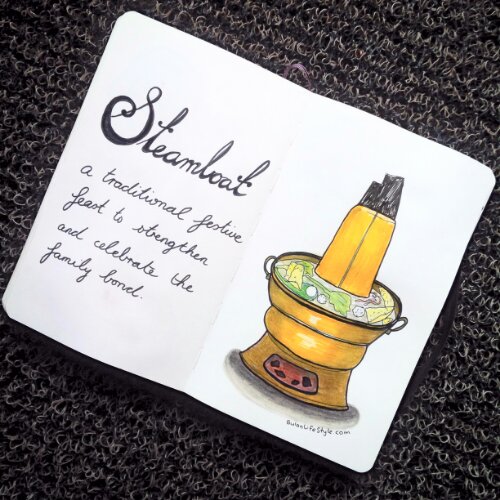 Steamboat
a traditional festive
feast to strengthen
and celebrate the
family bond.
BulanLifeStyle.com